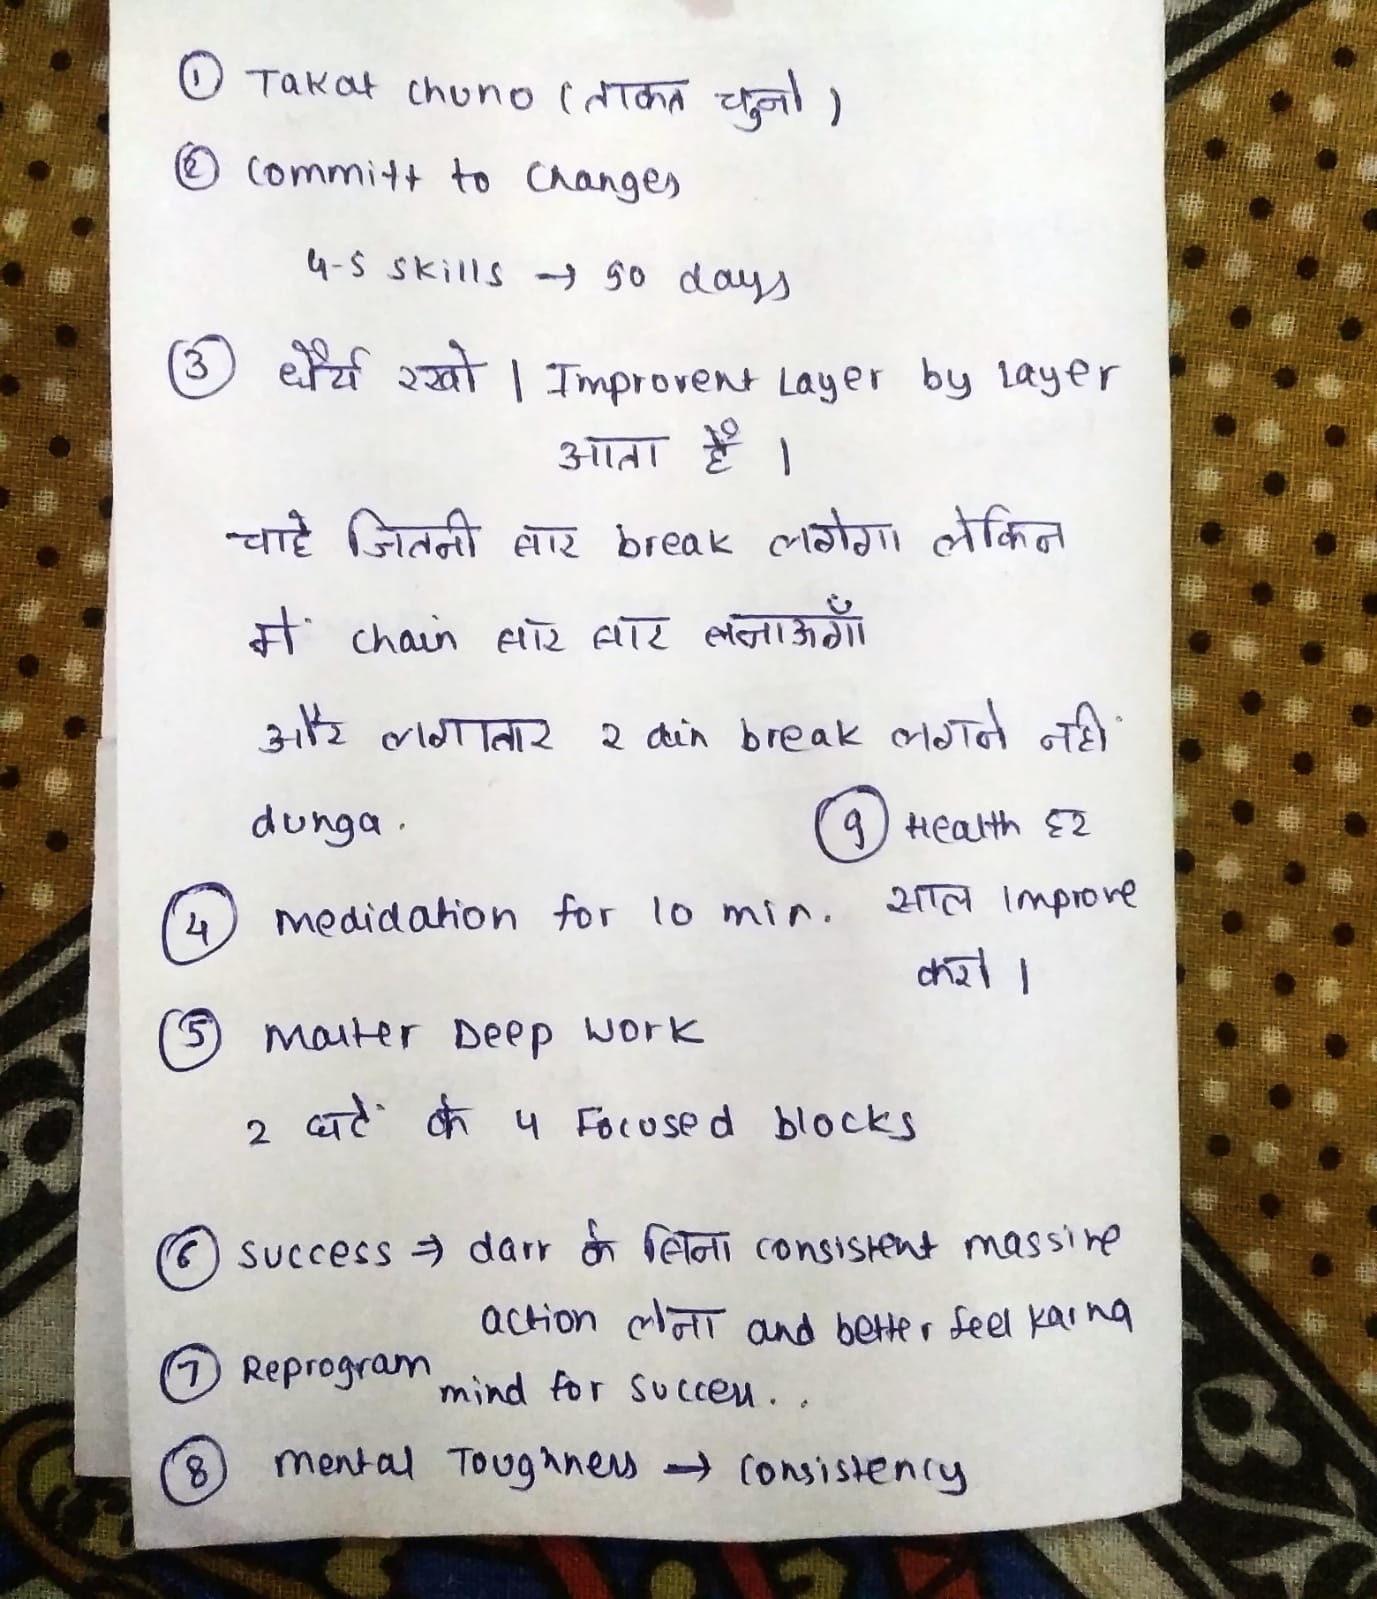 ① Takat chuno (ताकत चुनो)
② Committ to Changes
4-5 skills → 90 days
③ धैर्य रखो । Improvent Layer by Layer
आता है ।
चाहे जितनी बार break लगेगा लेकिन
में chain बार बार बनाऊगाँ
और लगातार 2 din break लगने नहीं
dunga.
④ Medidation for 10 min.
⑤ Master Deep Work
2 घटें के 4 Focused blocks
⑥ Success ⇒ darr के बिना consistent massive
action लेना and better feel karna
⑦ Reprogram
mind for success..
⑧ Mental Toughness → Consistency
⑨ Health हर
साल Improve
करो ।